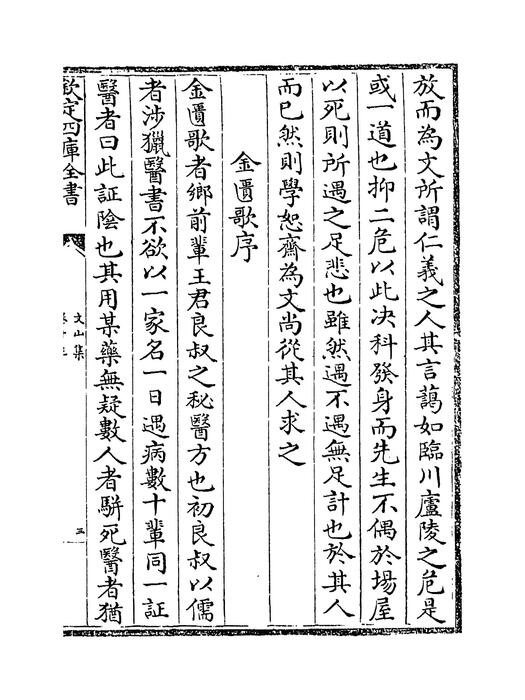 放而為文所謂仁義之人其言藹如臨川廬陵之危是
或一道也抑二危以此决科發身而先生不偶於場屋
以死則所遇之足悲也雖然遇不遇無足計也於其人
而已然則學恕齋為文尚從其人求之
金匱歌序
金匱歌者鄉前輩王君良叔之秘醫方也初良叔以儒
者涉獵醫書不欲以一家名一日遇病數十輩同一証
醫者曰此証陰也其用某藥無疑數人者駢死醫者猶
欽定四庫全書
文山集
三